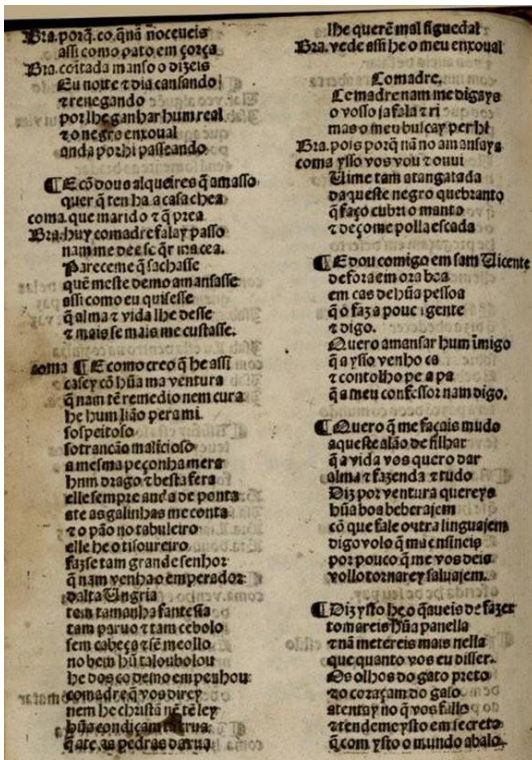 Bra. porq̃. co. quã noceueis
assi como pato em çorça
Bra. coitada manso o dizeis
Eu noite ⁊ dia cansando
⁊ renegando
por lhe ganhar hum real
⁊ o negro enxoual
anda por hi passeando
¶ E cõ dous alqueires q̃ amasso
quer q̃ tenha a casa chea
coma. que marido ⁊ q̃ prea
Bra. huy comadre falay passo
nam me dee se q̃r ma cea.
Pareceme q̃ sachasse
quẽ meste demo amansasse
assi como eu quisesse
q̃ alma ⁊ vida lhe desse
⁊ mais se mais me custasse.
coma ¶ E como creo q̃ he assi
casey cõ hũa ma ventura
q̃ nam tẽ remedio nem cura
he hum lião pera mi
sospeitoso
sotrancão malicioso
a mesma peçonha mera
hum drago ⁊ besta fera
elle sempre anda de ponta
ate as galinhas me conta
⁊ o pão no tabuleiro
elle he o tisoureiro
fazse tam grande senhor
q̃ nam venha o emperador
dalta Ungria
tem tamanha fantesia
tam paruo ⁊ tam cebolo
sem cabeça ⁊ sẽ meollo
no bem hũ taloubolou
he dos co demo em penhou
comadre q̃ vos direy
nem he christã nẽ tẽ ley
hũa condiçam
q̃ ate as pedras darua
lhe querẽ mal figuedal
Bra. vede assi he o meu enxoual
Comadre.
Comadre nam me digays
o vosso ja fala ⁊ ri
mas o meu bulcay per hi
Bra. pois porq̃ nã no amansays
coma ysso vos vou ⁊ ouui
Uime tam atangatada
daqueste negro quebranto
q̃ faço cubri o manto
⁊ deçome polla escada
¶ E dou comigo em sam Uicente
de fora em ora boa
em cas de hũa pessoa
q̃ o faz a pouca gente
⁊ digo.
Quero amansar hum imigo
q̃ a ysso venho ca
⁊ contolho pe a pa
q̃ a meu confessor nam digo.
¶ Quero q̃ me façais mudo
aqueste alão de filhar
q̃ a vida vos quero dar
alma ⁊ fazenda ⁊ tudo
Diz por ventura quereys
hũa boa beberajem
cõ que fale outra linguajem
digo volo q̃ ma ensineis
por pouco q̃ me vos deis
vollo tornarey saluajem.
¶ Diz ysto he o q̃ aueis de fazer
tomareis hũa panella
⁊ nã metereis mais nella
que quanto vos eu disser.
Os olhos do gato preto
⁊ o coraçam do galo
atentay no q̃ vos fallo
⁊ tendeme ysto em secreto
q̃ com ysto o mundo abalo.